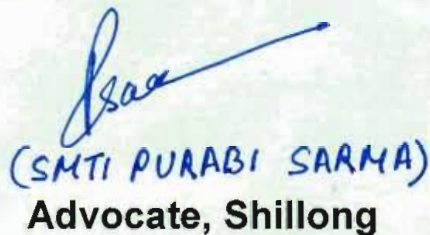 (SMTI PURABI SARMA)
Advocate, Shillong